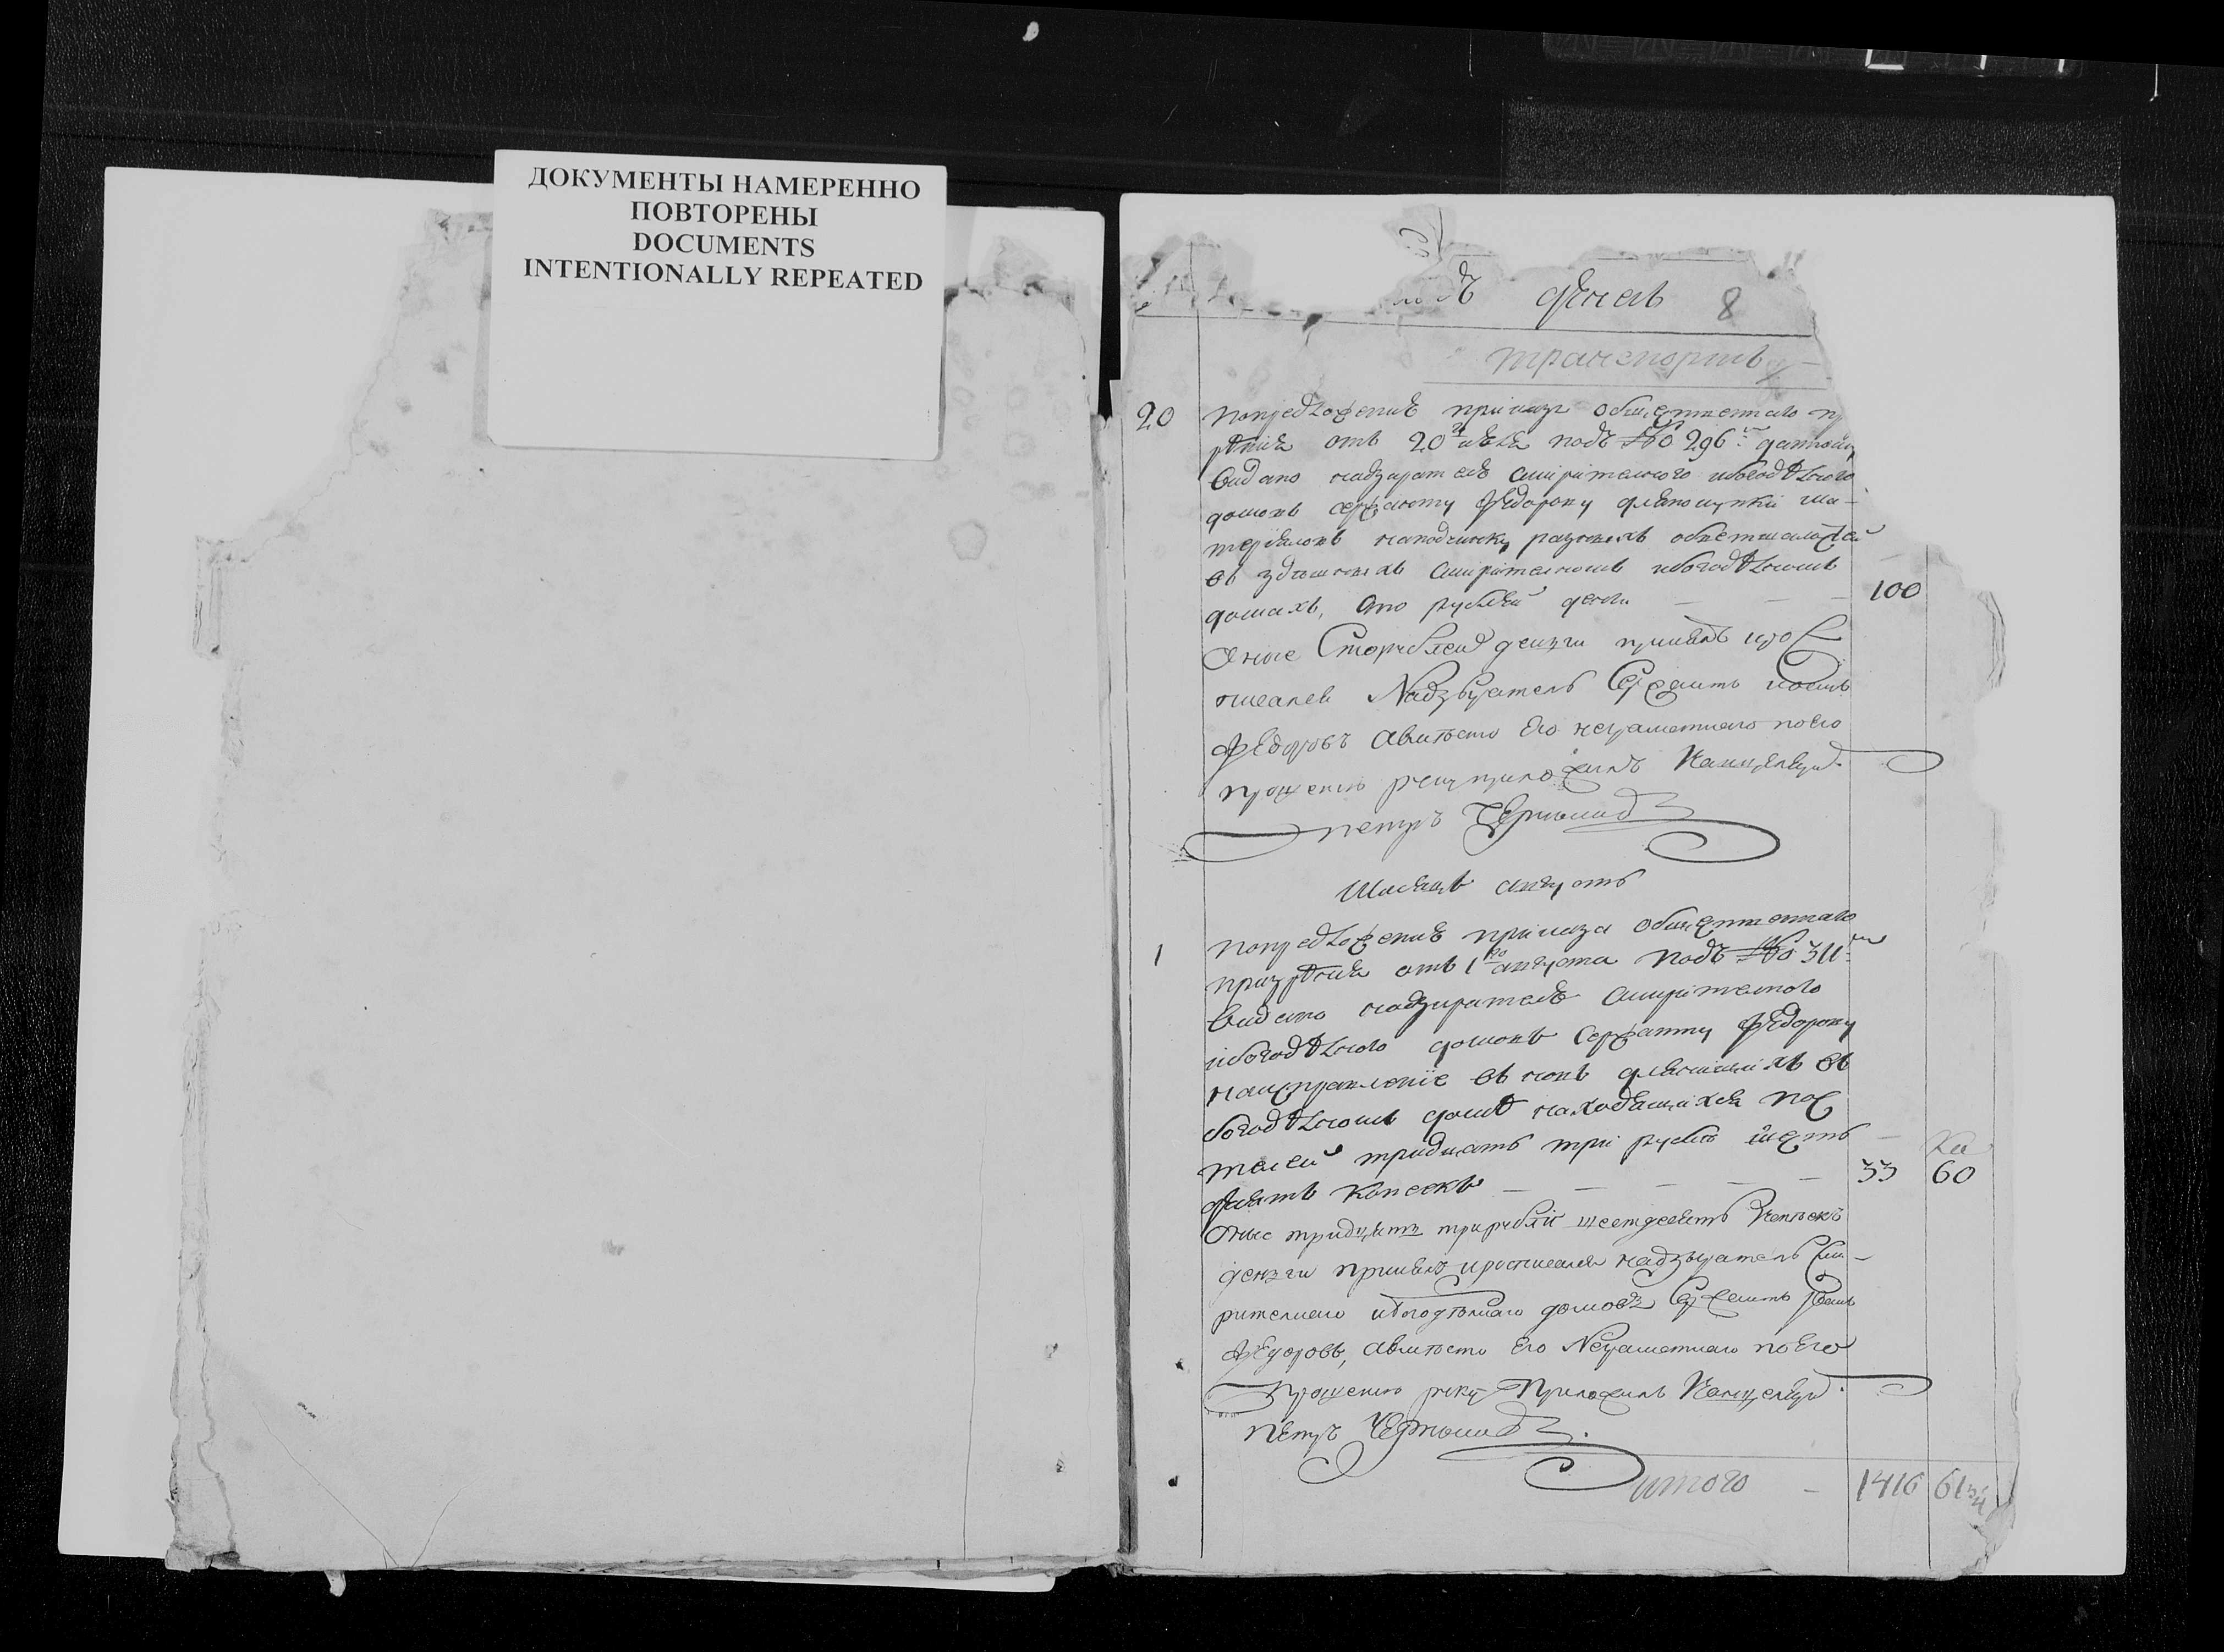 ДОКУМЕНТЫ НАМЕРЕННО
ПОВТОРЕНЫ
DOCUMENTS
INTENTIONALLY REPEATED
8
транспортъ
20 попредложение приказа общественнаго п
рѣния отъ 20 июля подъ № 296
видано надзирателю смирителного ибогодѣлного
домовъ сержанту Федорову дляпокупки ма-
териаловъ напочинку обветшалостей
въ здешнихъ смирителномъ ибогодѣлномъ
домахъ, сто рублей денги — — — 100
Оные Сторублей денги принялъ ирос
писался Надзыратель Сержантъ
Федоровъ авместо Его неграматнаго поего
прошению руку приложилъ Канцеляри.
петръ
Месяцъ августъ
1 попредложение приказа общественнаго
призрѣния отъ 1го августа подъ № 311
видано надзирателю смирителного
ибогодѣлного домовъ Сержанту Федорову
наисправление въ
богодѣлномъ доме находящихся пос
телей тридцать три рубли шесть
десятъ копеекъ — — — — — 33 60
Оные тридцать трирубли шестдесятъ копѣекъ
денги принялъ иросписался надзыратель Сми-
рителнаго ибогодѣлнаго домовъ Сержантъ
Федоровъ, авместо Его Неграматнаго поЕго
Прошению руку Приложилъ Канцеляри.
Петръ
итого — 1416 61 3/4